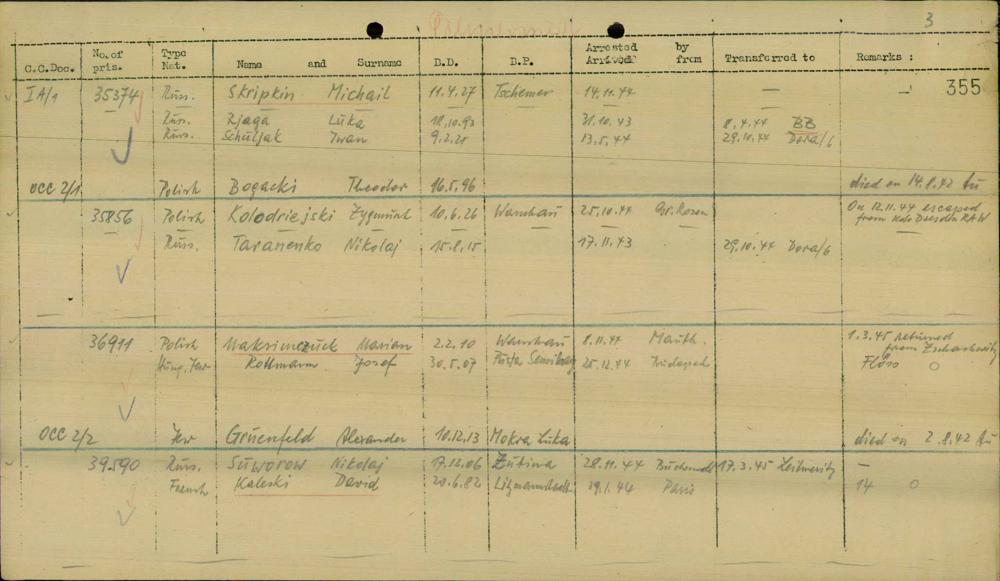 3
C.C.Doc. No.of pris. Type Nat. Name and Surname D.D. D.P. Arrested Arrived by from Transferred to Remarks :
IA/1 35374 Russ. Skripkin Michail 11.4.27 Tschemer 14.11.44 — — 355
Russ. Rjaga Luka 18.10.93 31.10.43 8.4.44 BB
Russ. Schuljak Iwan 9.2.20 13.5.44 29.10.44 Dora/6
OCC 2/1 Polish Bogacki Theodor 16.5.96 died on 14.8.42 Au
35856 Polish Kolodziejski Zygmunt 10.6.26 Warschau 25.10.44 Gr. Rosen On 12.11.44 escaped
from Kdo Dresden RAW
Russ. Taranenko Nikolaj 15.8.15 17.11.43 29.10.44 Dora/6
36911 Polish Maksimczuck Marian 2.2.10 Warschau 8.11.44 Mauth. 1.3.45 returned
from
Hung. Jew Rottmann Josef 30.5.07 25.12.44 Budapest Floss O
OCC 2/2 Jew Gruenfeld Alexander 10.12.13 Mokra Luka died on 2.8.42 Au
39590 Russ. Suworow Nikolaj 17.12.06 28.11.44 Buchenwald 17.3.45 Leitmeritz —
French Kaleski David 20.6.82 Litzmannstadt 19.1.44 Paris 14 O